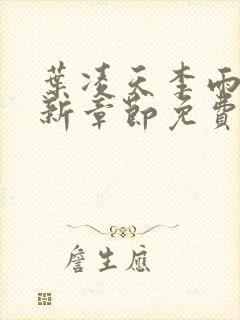 葉凌天李雨
新章節免費
詹生應